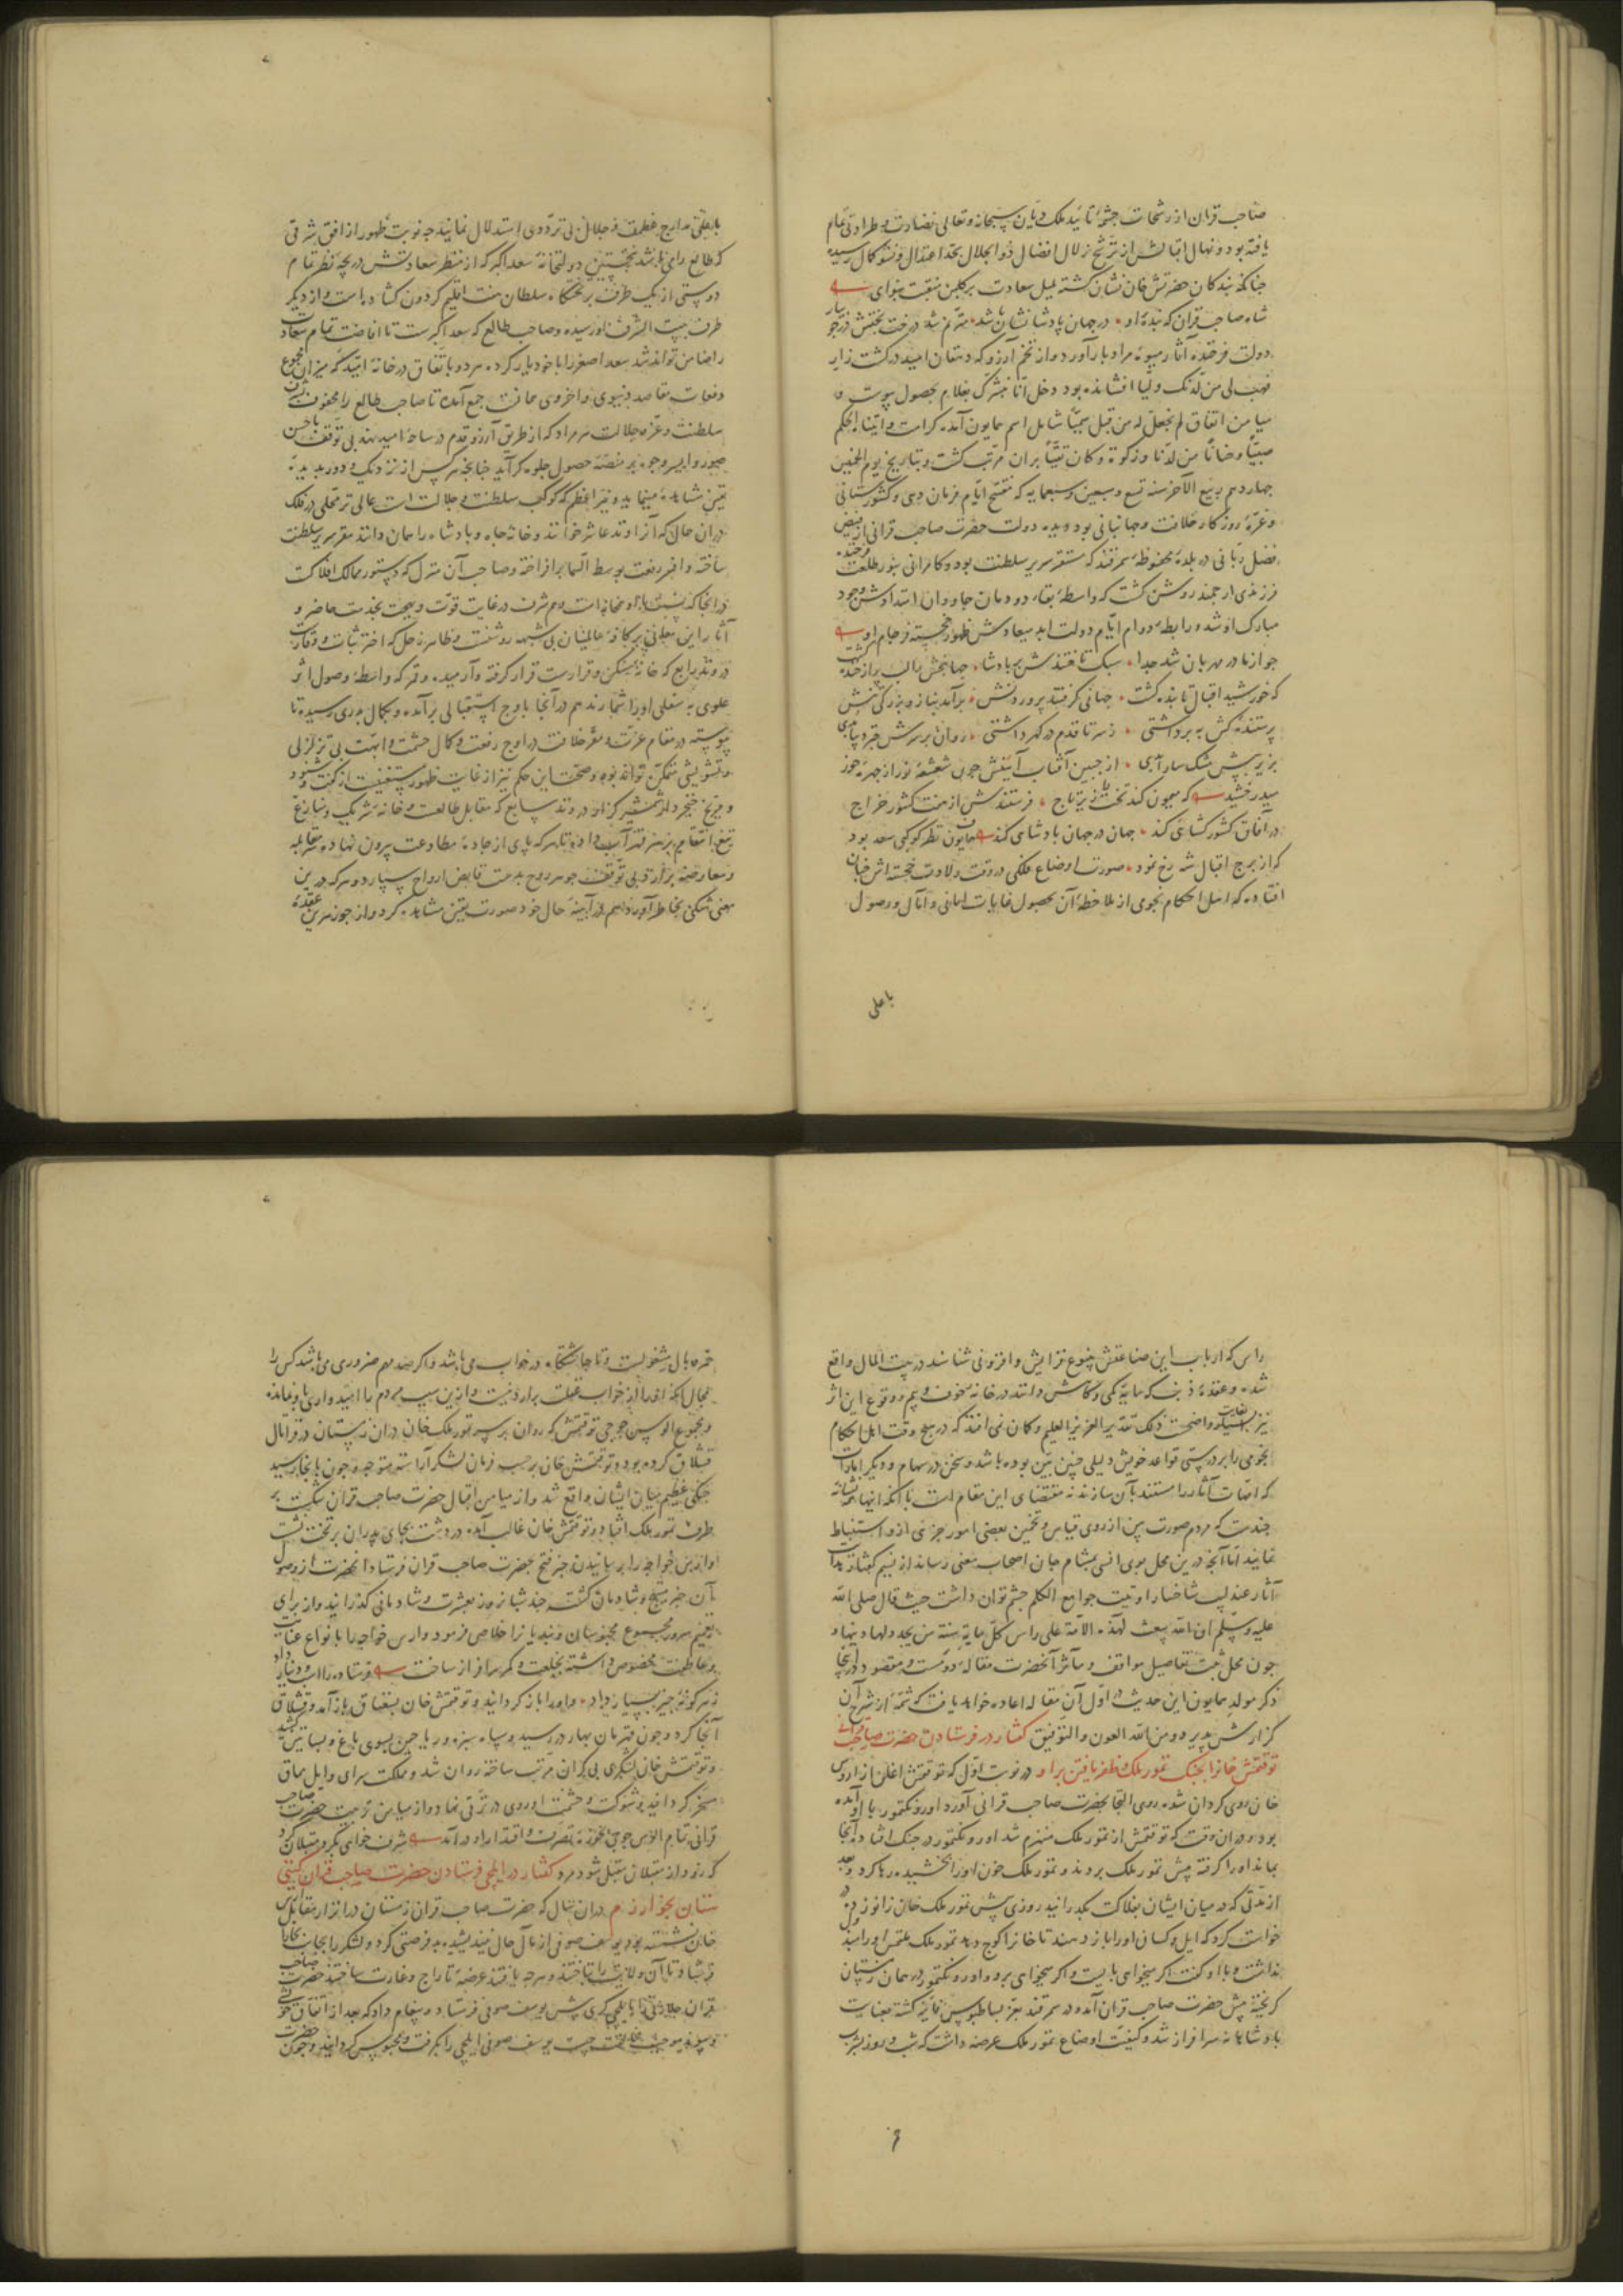 صاحب قران از رشحات چشمهٔ تائید ملک دیان سبحانه و تعالی نضارت و طراوتی تمام
یافته بود و نهال اقبالش از ترشح زلال افضال ذو الجلال بحد اعتدال و نشو کمال رسیده
چنانکه بندکان حضرتش خان نشان کشته بلبل سعادت بر کلبن منقبت بنوای
شاه صاحب قران که بنده او در جهان پادشا نشان باشد مترنم شد درخت بختش در جویبار
دولت فرخنده آثار میوهٔ مراد بار آورد و از تخم آرزو که دهقان امید در کشت زار
فهب لی من لدنک ولیا افشانده بود دخل انا نبشرک بغلام بحصول پیوست و
میامن اتفاق لم نجعل له من قبل سمیا شامل اسم همایون آمد کرامت و اتیناه الحکم
صبیا و حنانا من لدنا و زکوة و کان تقیا بران مرتب کشت و بتاریخ یوم الخمیس
چهاردهم ربیع الآخر سنه تسع و سبعین و سبعمایه که مفتتح ایام فرمان دهی و کشورستانی
و غره روزکار خلافت و جهانبانی بود دیده دولت حضرت صاحب قرانی از فیض
فضل ربانی در بلده محفوظه سمرقند که مستقر سریر سلطنت بود و کامرانی بنور طلعت فرخنده
فرزندی ارجمند روشن کشت که واسطه بقاء دودمان جاودان امتدادش وجود
مبارک او شد و رابطهٔ دوام ایام دولت ابد میعادش ظهور خجسته فرجام او
چو از مادر مهربان شد جدا سبک تافتندش بر پادشا جهانبخش را لب پر از خنده کشت
که خورشید اقبال تابنده کشت جهانی کرفتند پروردنش برآمد بناز و بزرکی تنش
پرستنده کش به بر داشتی ز سر تا قدم در کهر داشتی روان بر سرش چتر دیبا بدی
بزیر پیش مشک سارا بدی از جبین آفتاب آیینش چون شعشعهٔ نور از چهرهٔ حور
میدرخشید که میمون کند تخت را زیر تاج فرستندش از هفت کشور خراج
در آفاق کشور کشائی کند جهان در جهان پادشاهی کند همایون نظر کوکبی سعد بود
که از برج اقبال شه رخ نمود صورت اوضاع فلکی در وقت ولادت خجسته اش چنان
افتاده که اهل احکام نجومی از ملاحظهٔ آن بحصول غایات امانی و آمال و وصول
باعلی
باعلی مدارج عظمت و جلال بی ترددی استدلال نمایند چه نوبت ظهور از افق شرقی
که طالع رای باشد نخستین دولتخانهٔ سعد اکبر که از منظر سعادتش دریچهٔ نظر تمام
دوستی از یک طرف بر تختگاه سلطان هفت اقلیم کردون کشاده است و از دیکر
طرف ببیت الشرف او رسیده و صاحب طالع که سعد اکبرست تا افاضت تمام سعادت
را ضامن تواند شد سعد اصغر را با خود یار کرده هر دو باتفاق در خانهٔ امید که میزان مجموع
دفعات مقاصد دنیوی و اخروی همانست جمع آمده تا صاحب طالع را محفوف شرف
سلطنت و عز جلالت هر مراد که از طریق آرزو قدم در ساحهٔ امید نهد بی توقف باحسن
صور و ایسر وجوه بر منصهٔ حصول جلوه کر آید چنانچه هر کس از نزدیک و دور بدیده
یقین مشاهده مینماید و نیر اعظم که کوکب سلطنت و جلالت است عالی تر محلی در فلک
دران حال که آنرا وتد عاشر خوانند و خانهٔ جاه و پادشاه را همان دانند مقر سریر سلطنت
ساخته و افسر رفعت بوسط السما برافراخته و صاحب آن منزل که دستور ممالک افلاکست
در آنجا که نسبت با او همخانه است و هم شرف در غایت قوت و بهجت بخدمت حاضر و
آثار این معانی بر کافهٔ عالمیان بی شبهه روشنست و ظاهر زحل که اختر ثبات و وقارست
در وتد رابع که خانهٔ مسکن و قرارست قرار کرفته و آرمیده و قمر که واسطهٔ وصول اثر
علوی به سفلی او را شمارند هم در آنجا باوج استقبالی برآمده و بکمال بدری رسیده تا
پیوسته در مقام عزت و مقر خلافت در اوج رفعت و کمال حشمت و ابهت بی تزلزلی
و تشویشی متمکن تواند بود و صحت این حکم نیز از غایت ظهور مستغنیست از کفت و شنود
و مریخ خنجر دار شمشیر کزار در وتد سابع که مقابل طالعست و خانهٔ شریک و منازع
تیغ انتقام بزهر قهر آب داده تا هر که پای از جادهٔ مطاوعت بیرون نهاده مقابله
و معارضه برآرد بی توقف جوهر روح بدست قابض ارواح سپارد و هر که درین
معنی شکی بخاطر آورد هم در آیینهٔ حال خود صورت یقین مشاهده کرد و از جوزهرین عقدهٔ
راس که ارباب این صناعتش ینبوع فزایش و افزونی شناسند در بیت المال واقع
شده و عقدهٔ ذنب که مایهٔ کمی و کاهش دانند در خانهٔ خوف و بیم و وقوع این اثر
نیز بغایت نیکو واضحست ذلک تقدیر العزیز العلیم و کمان نمی افتد که در هیچ وقت اهل احکام
نجومی را بر درستی قواعد خویش دلیلی چنین مبین بوده باشد و سخن در سهام و دیکر امارات
که اضافت آثار را مستند بآن سازند نه مقتضای این مقام است با آنکه اینها همه نشانهٔ
چندست که مردم صورت بین از روی قیاس و تخمین بعضی امور جزئی ازو استنباط
نمایند اما آنچه درین محل بوی انسی بمشام جان اصحاب معنی رساند از نسیم کفتار هدایت
آثار عندلیب شاخسار اوتیت جوامع الکلم چشم توان داشت حیث قال صلی الله
علیه و سلم ان الله یبعث لهذه الامة علی راس کل مایة سنة من یجدد لها دینها و
چون محل ثبت تفاصیل مواقف و مآثر آنحضرت مقالهٔ دومست و مقصود در اینجا
ذکر مولد همایون این حدیث در اول آن مقاله اعاده خواهد یافت که شمهٔ از شرح آن
کزارش پذیرد و من الله العون و التوفیق کفتار در فرستادن حضرت صاحب قرانی
توقتمش خانرا بجنک تمور ملک و ظفر یافتن بر او در نوبت اول که توقتمش اغلن از اروس
خان روی کردان شده روی التجا بحضرت صاحب قرانی آورد اورونکتمور با او آمده
بود و دران وقت که توقتمش از تمور ملک منهزم شد اورونکتمور در جنک افتاده آنجا
بماند او را کرفته پیش تمور ملک بردند و تمور ملک خون او را بخشیده رها کرد و بعد
از مدتی که در میان ایشان بفلاکت بگذرانید روزی پیش تمور ملک خان زانو زده
خواست کرد که ایل و کسان او را باز دهند تا خانرا کوچ دهد تمور ملک ملتمس او را مبذول
نداشت و با او کفت اکر میخواهی باایست و اکر میخواهی برو و اورونکتمور در همان زمستان
کریخته پیش حضرت صاحب قران آمد و در سمرقند بعز بساط بوس فایز کشته بعنایت
پادشاهانه سرافراز شد و کیفیت اوضاع تمور ملک عرضه داشت که شب و روز بشرب
خمر و بال مشغولست و تا چاشتگاه در خواب می باشد و اکر صد مهم ضروری می باشد کس را
مجال آنکه او را از خواب غفلت بردارد نیست و ازین سبب مردم را امیدواری باو نمانده
و مجموع الوس جوجی توقتمش که روان بر سر تمور ملک خان دران زمستان در قراتال
قشلاق کرده بود و توقتمش خان بر حسب فرمان لشکر آراسته متوجه و چون بانجا رسید
جنکی عظیم میان ایشان واقع شد و از میامن اقبال حضرت صاحب قران شکست بر
طرف تمور ملک افتاد و توقتمش خان غالب آمده در دشت بجای پدران بر تخت نشست
اوازس خواجه را برسانیدن خبر فتح بحضرت صاحب قران فرستاد و آنحضرت از وصول
آن خبر مبتهج و شادمان کشته چند شبانروز بعشرت و شادمانی کذرانید و از برای
تعمیم سرور مجموع محبوسان و بندیانرا خلاصی فرمود و ارس خواجه را بانواع عنایت
و عاطفت مخصوص داشته بخلعت و کمر سرافراز ساخت فرستاده را اسب و دینار داد
ز هر کونه چیز بسیار داد و او را باز کردانید و توقتمش خان بسغناق باز آمد و قشلاق
آنجا کرد و چون قهرمان بهار در رسید و سپاه سبزه و ریاحین بسوی باغ و بساتین کشید
و توقتمش خان لشکری بی کران مرتب ساخته روان شد و مملکت سرای و ایل مماق
مسخر کردانید و شوکت و حشمت او روی در ترقی نهاد و از میامن تربیت حضرت صاحب
قرانی تمام الوس جوجی بحوزهٔ تصرف و اقتدار او درآمد شرف خواهی بکرد مقبلان کرد
که زود از مقبلان مقبل شود مرد کفتار در ایلچی فرستادن حضرت صاحب قران کیتی
ستان بخوارزم دران سال که حضرت صاحب قران زمستان در اترار مقابل اروس
خان نشسته بود یوسف صوفی از مآل حال نیندیشیده فرصتی کرد و لشکر را بجانب بخارا
فرستاد تا آن ولایت را تاختند و هر چه یافتند عرضهٔ تاراج و غارت ساختند حضرت صاحب
قران جلایتی را بایلچی کری پیش یوسف صوفی فرستاد و پیغام داد که بعد از اتفاق خویشی
و پیوند موجب مخالفت چیست یوسف صوفی ایلچی را بکرفت و محبوس کردانید و چون حضرت